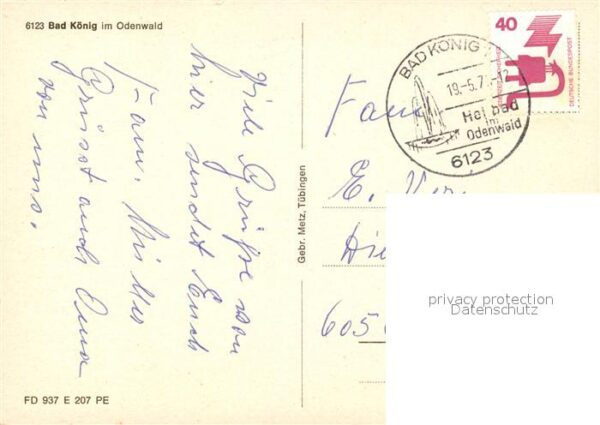 6123 Bad König im Odenwald
Viele Grüße von
hier sendet Euch
Fam.
Grüsst auch Oma
von uns.
FD 937 E 207 PE
Gebr. Metz, Tübingen
BAD KÖNIG
19.-5.7
-12
Heilbad
im
Odenwald
6123
40
DEUTSCHE BUNDESPOST
Fam
E.
605
privacy protection
Datenschutz